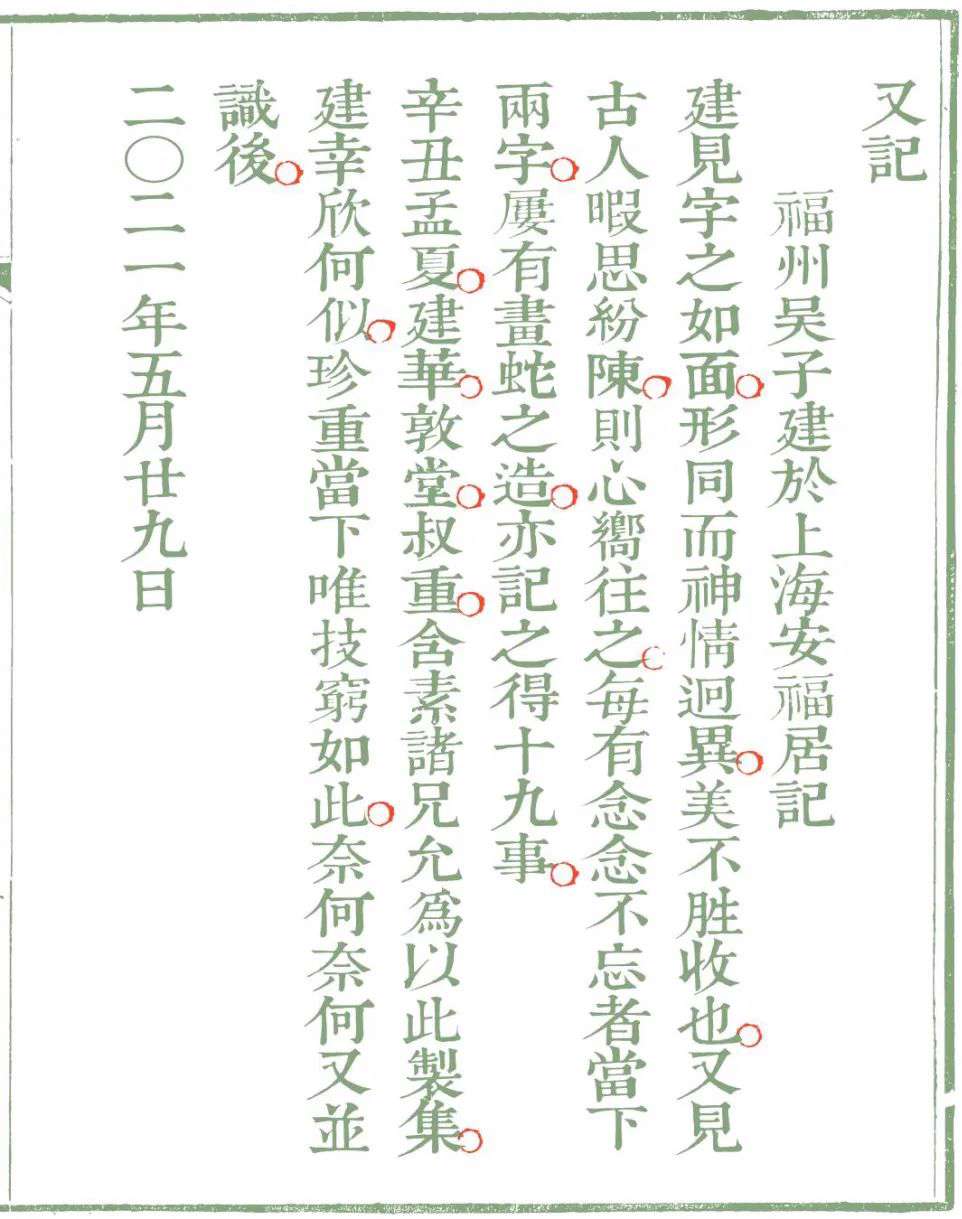 又記
福州吴子建於上海安福居記
建見字之如面形同而神情迥異美不胜收也又見
古人暇思紛陳則心嚮往之每有念念不忘者當下
兩字屢有畫蛇之造亦記之得十九事
辛丑孟夏建華敦堂叔重含素諸兄允爲以此製集
建幸欣何似珍重當下唯技窮如此奈何奈何又並
識後
二〇二一年五月廿九日